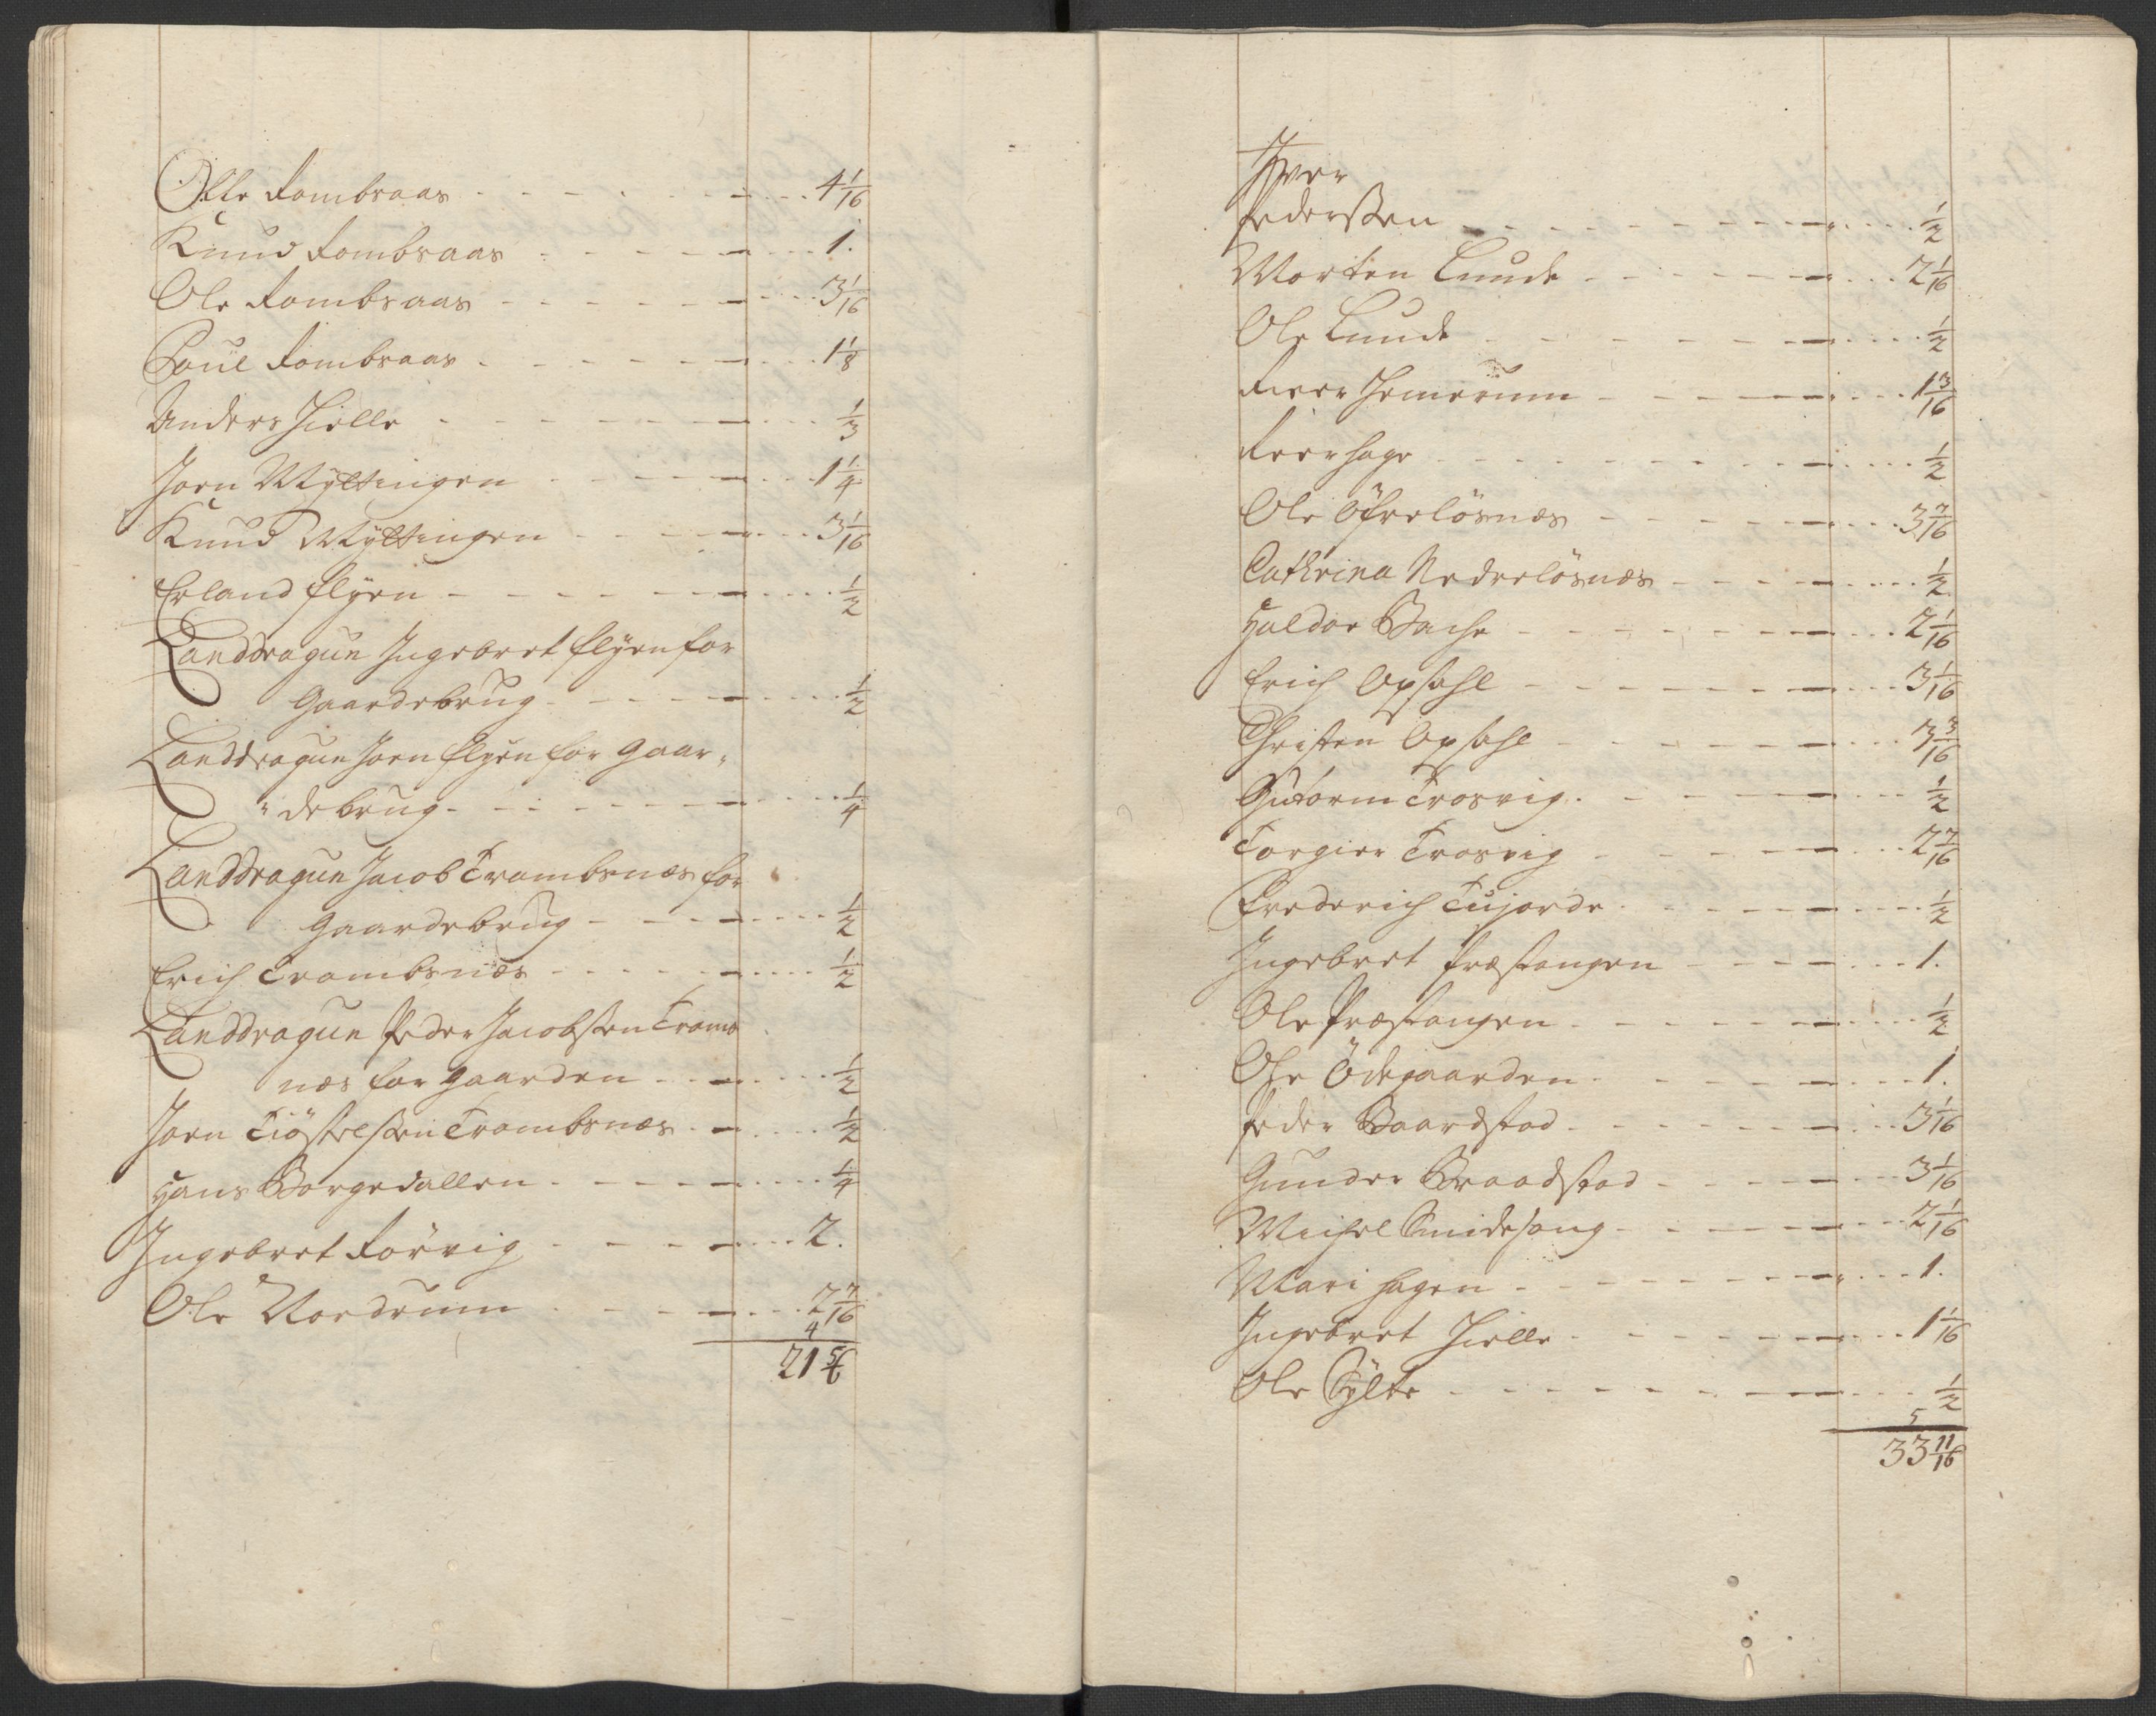 Olle Rombsaas - - - - - - - 4 1/16
Knud Rombsaas - - - - - - 1.
Ole Rombsaas - - - - - - 3 1/16
Poül Rombsaas - - - - - - 1 1/8
Anders Hielle - - - - - - 1/3
Joen Myttingen - - - - - 1 1/4
Knud Myttingen - - - - - 3 1/16
Erland Flÿen - - - - - - 1/2
Landdragun Ingebret Flÿen for
Gaardebrug - - - - - 1/2
Landdragun Joen Flÿen for Gaar„
„debrug - - - - - - - 1/4
Landdragun Jacob Trombsnæs for
Gaardebrug - - - - - 1/2
Erich Trombsnæs - - - - - 1/2
Landdragun Peder Jacobsen Tromb
næs for Gaarden - - - 1/2
Joen Tiöstelsen Trombsnæs - - 1/2
Hans Borgedallen - - - - - 1/4
Ingebret Rörvig - - - - - 2.
Ole Nordrum - - - - - 2 7/16
4
21 5/6
Iver
Pedersen - - - - - - - - 1/2
Morten Lunde - - - - - - 2 1/16
Ole Lunde - - - - - - - 1/2
Reer Jemerum - - - - - - 1 3/16
Reer Hage - - - - - - - - 1/2
Ole Öfrelösnæs - - - - - - 3 7/16
Cathrina Nedrelösnæs - - - - 1/2
Haldor Bache - - - - - - - 2 1/16
Erich Opsahl - - - - - - - 3 1/16
Christen Opsahl - - - - - - 3 3/16
Gutorm Trosvig - - - - - - 1/2
Torgier Trosvig - - - - - - 2 7/16
Frederich Tujorde - - - - - 1/2
Ingebret Præstangen - - - - 1.
Ole Præstangen - - - - - - 1/2
Ole Ödegaarden - - - - - - 1.
Peder Baardstad - - - - - - 3 1/16
Gunder Braadstad - - - - - 3 1/16
Michel Smidehaug - - - - - 2 1/16
Mari Hagen - - - - - - - - 1.
Ingebret Hielle - - - - - - 1 1/16
Ole Sÿlte - - - - - - - - 1/2
5
33 11/16